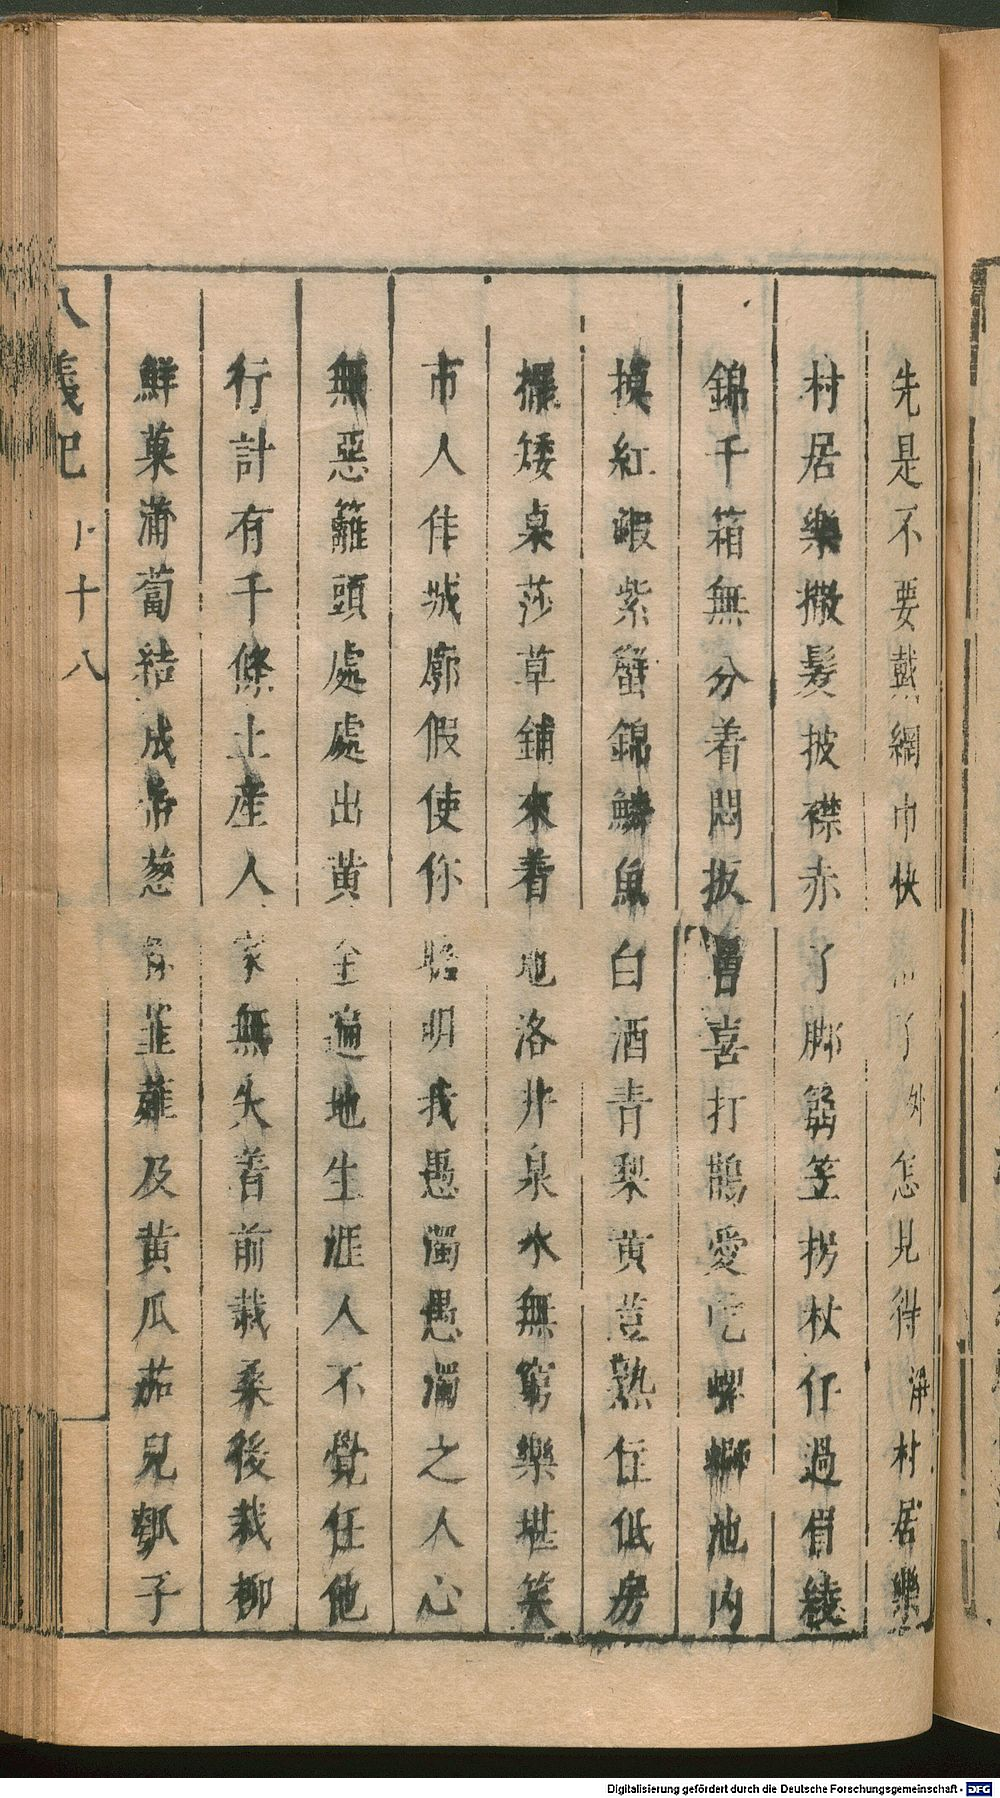 先是不要戴網巾快了外怎見得淨村居樂
村居樂撒髮披襟赤了脚篛笠拐杖仃過眉綾
錦千箱無分着悶扳罾喜打鵲愛吃螺螄池内
摸紅蝦紫蟹錦鱗魚白酒青梨黄荳熟住低房
擺矮桌莎草鋪來着地洛井泉水無窮樂堪笑
市人住城廓假使你聰明我愚濁愚濁之人心
無惡籬頭處處出黄金遍地生涯人不覺任他
行計有千條土産人家無失着前栽桑後栽柳
鮮菓蒲萄結成帶葱有韮薤及黄瓜茄兒瓠子
八義記 卜十八
Digitalisierung gefördert durch die Deutsche Forschungsgemeinschaft - DFG